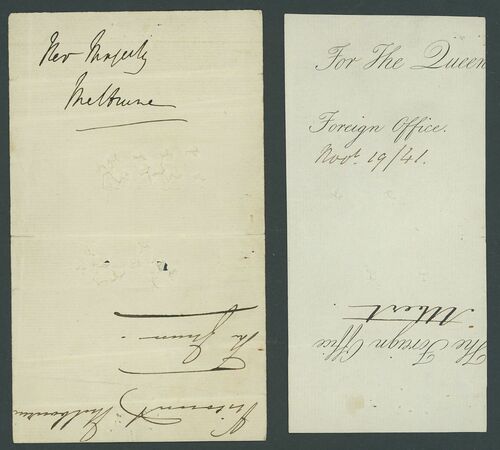 Her Majesty
Melbourne
Viscount Melbourne
The Queen
For The Queen
Foreign Office.
Novr 19/41.
The Foreign Office
Albert